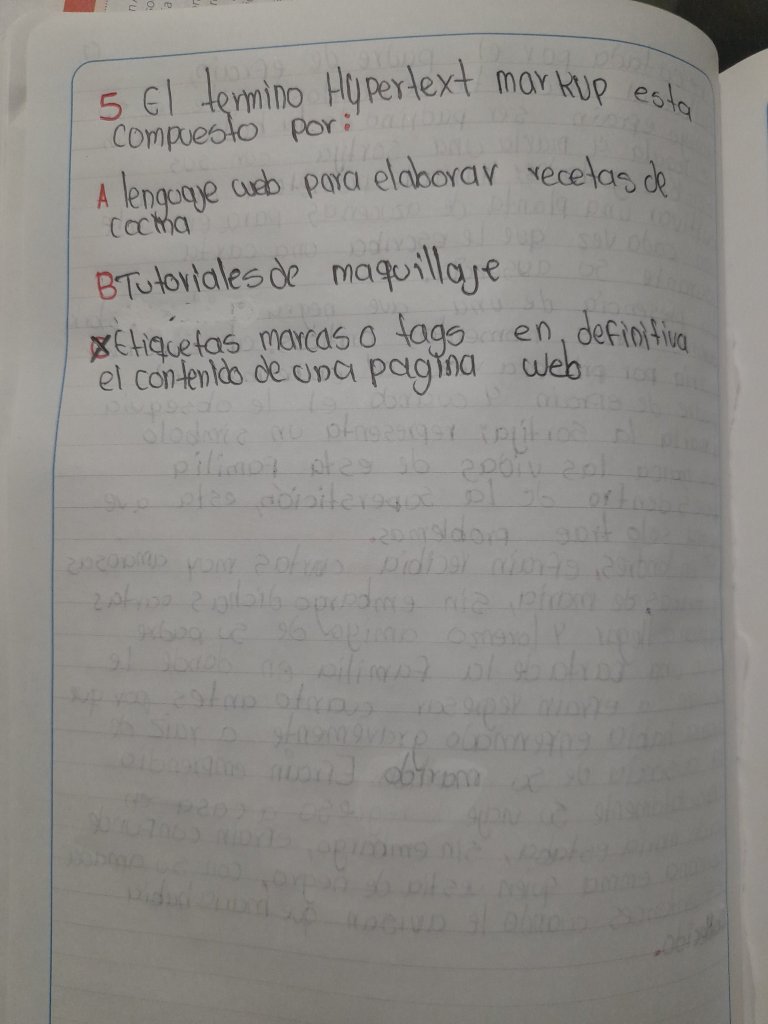 5 El termino Hypertext markup esta
compuesto por:
A lenguaje web para elaborar recetas de
cocina
B Tutoriales de maquillaje
X Etiquetas marcas o tags en definitiva
el contenido de una pagina web